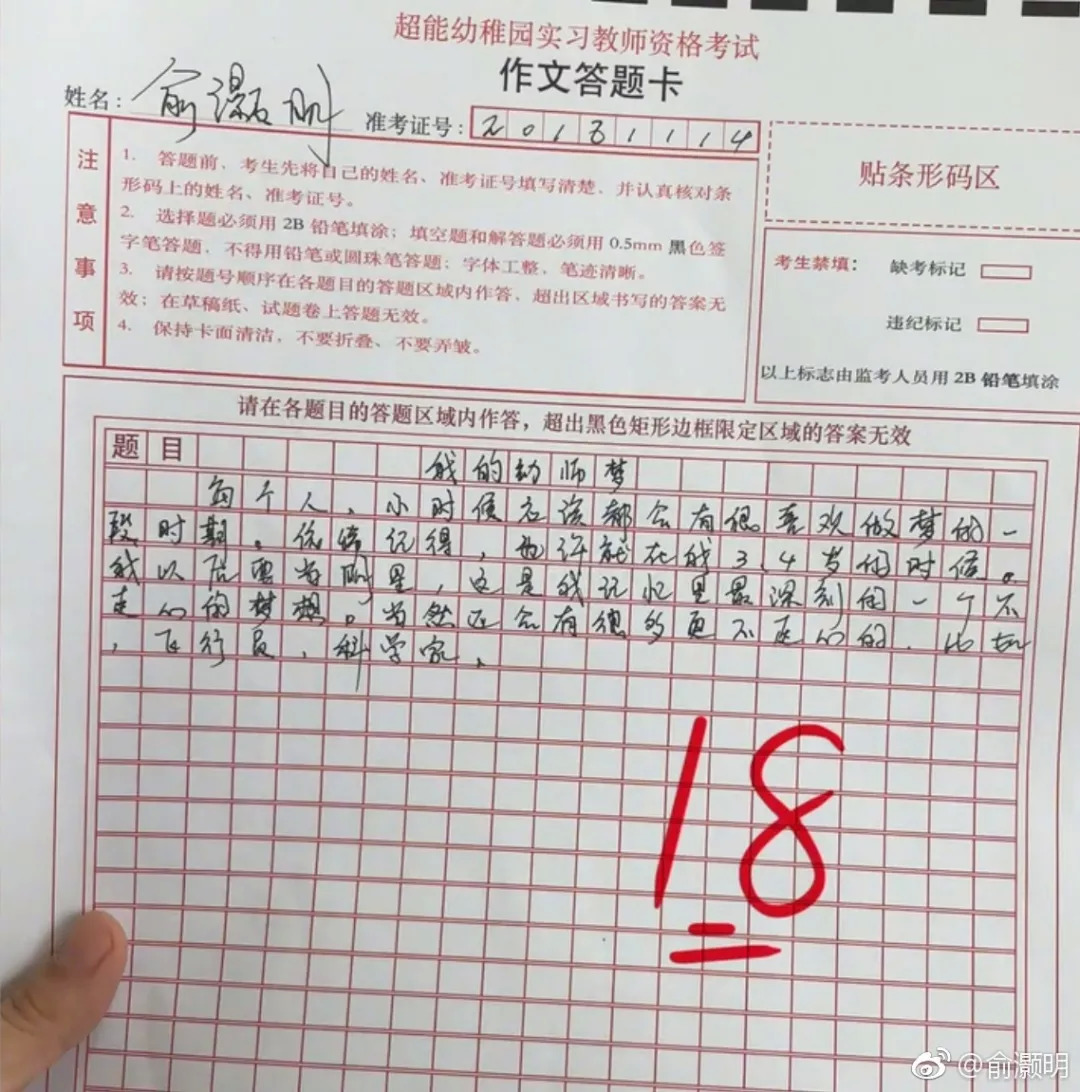 超能幼稚园实习教师资格考试
作文答题卡
姓名：俞灏明 准考证号：20181114
注意事项
1. 答题前，考生先将自己的姓名、准考证号填写清楚，并认真核对条
形码上的姓名、准考证号。
2. 选择题必须用 2B 铅笔填涂；填空题和解答题必须用 0.5mm 黑色签
字笔答题，不得用铅笔或圆珠笔答题；字体工整、笔迹清晰。
3. 请按题号顺序在各题目的答题区域内作答，超出区域书写的答案无
效；在草稿纸、试题卷上答题无效。
4. 保持卡面清洁，不要折叠、不要弄皱。
贴条形码区
考生禁填： 缺考标记
违纪标记
以上标志由监考人员用 2B 铅笔填涂
请在各题目的答题区域内作答，超出黑色矩形边框限定区域的答案无效
题目 我的幼师梦
每个人，小时候应该都会有很喜欢做梦的一
段时期。依稀记得，也许就在我3、4岁的时候。
我以后要当明星，这是我记忆里最深刻的一个不
走心的梦想。当然还会有很多更不走心的，比如
，飞行员，科学家。
18
@俞灏明